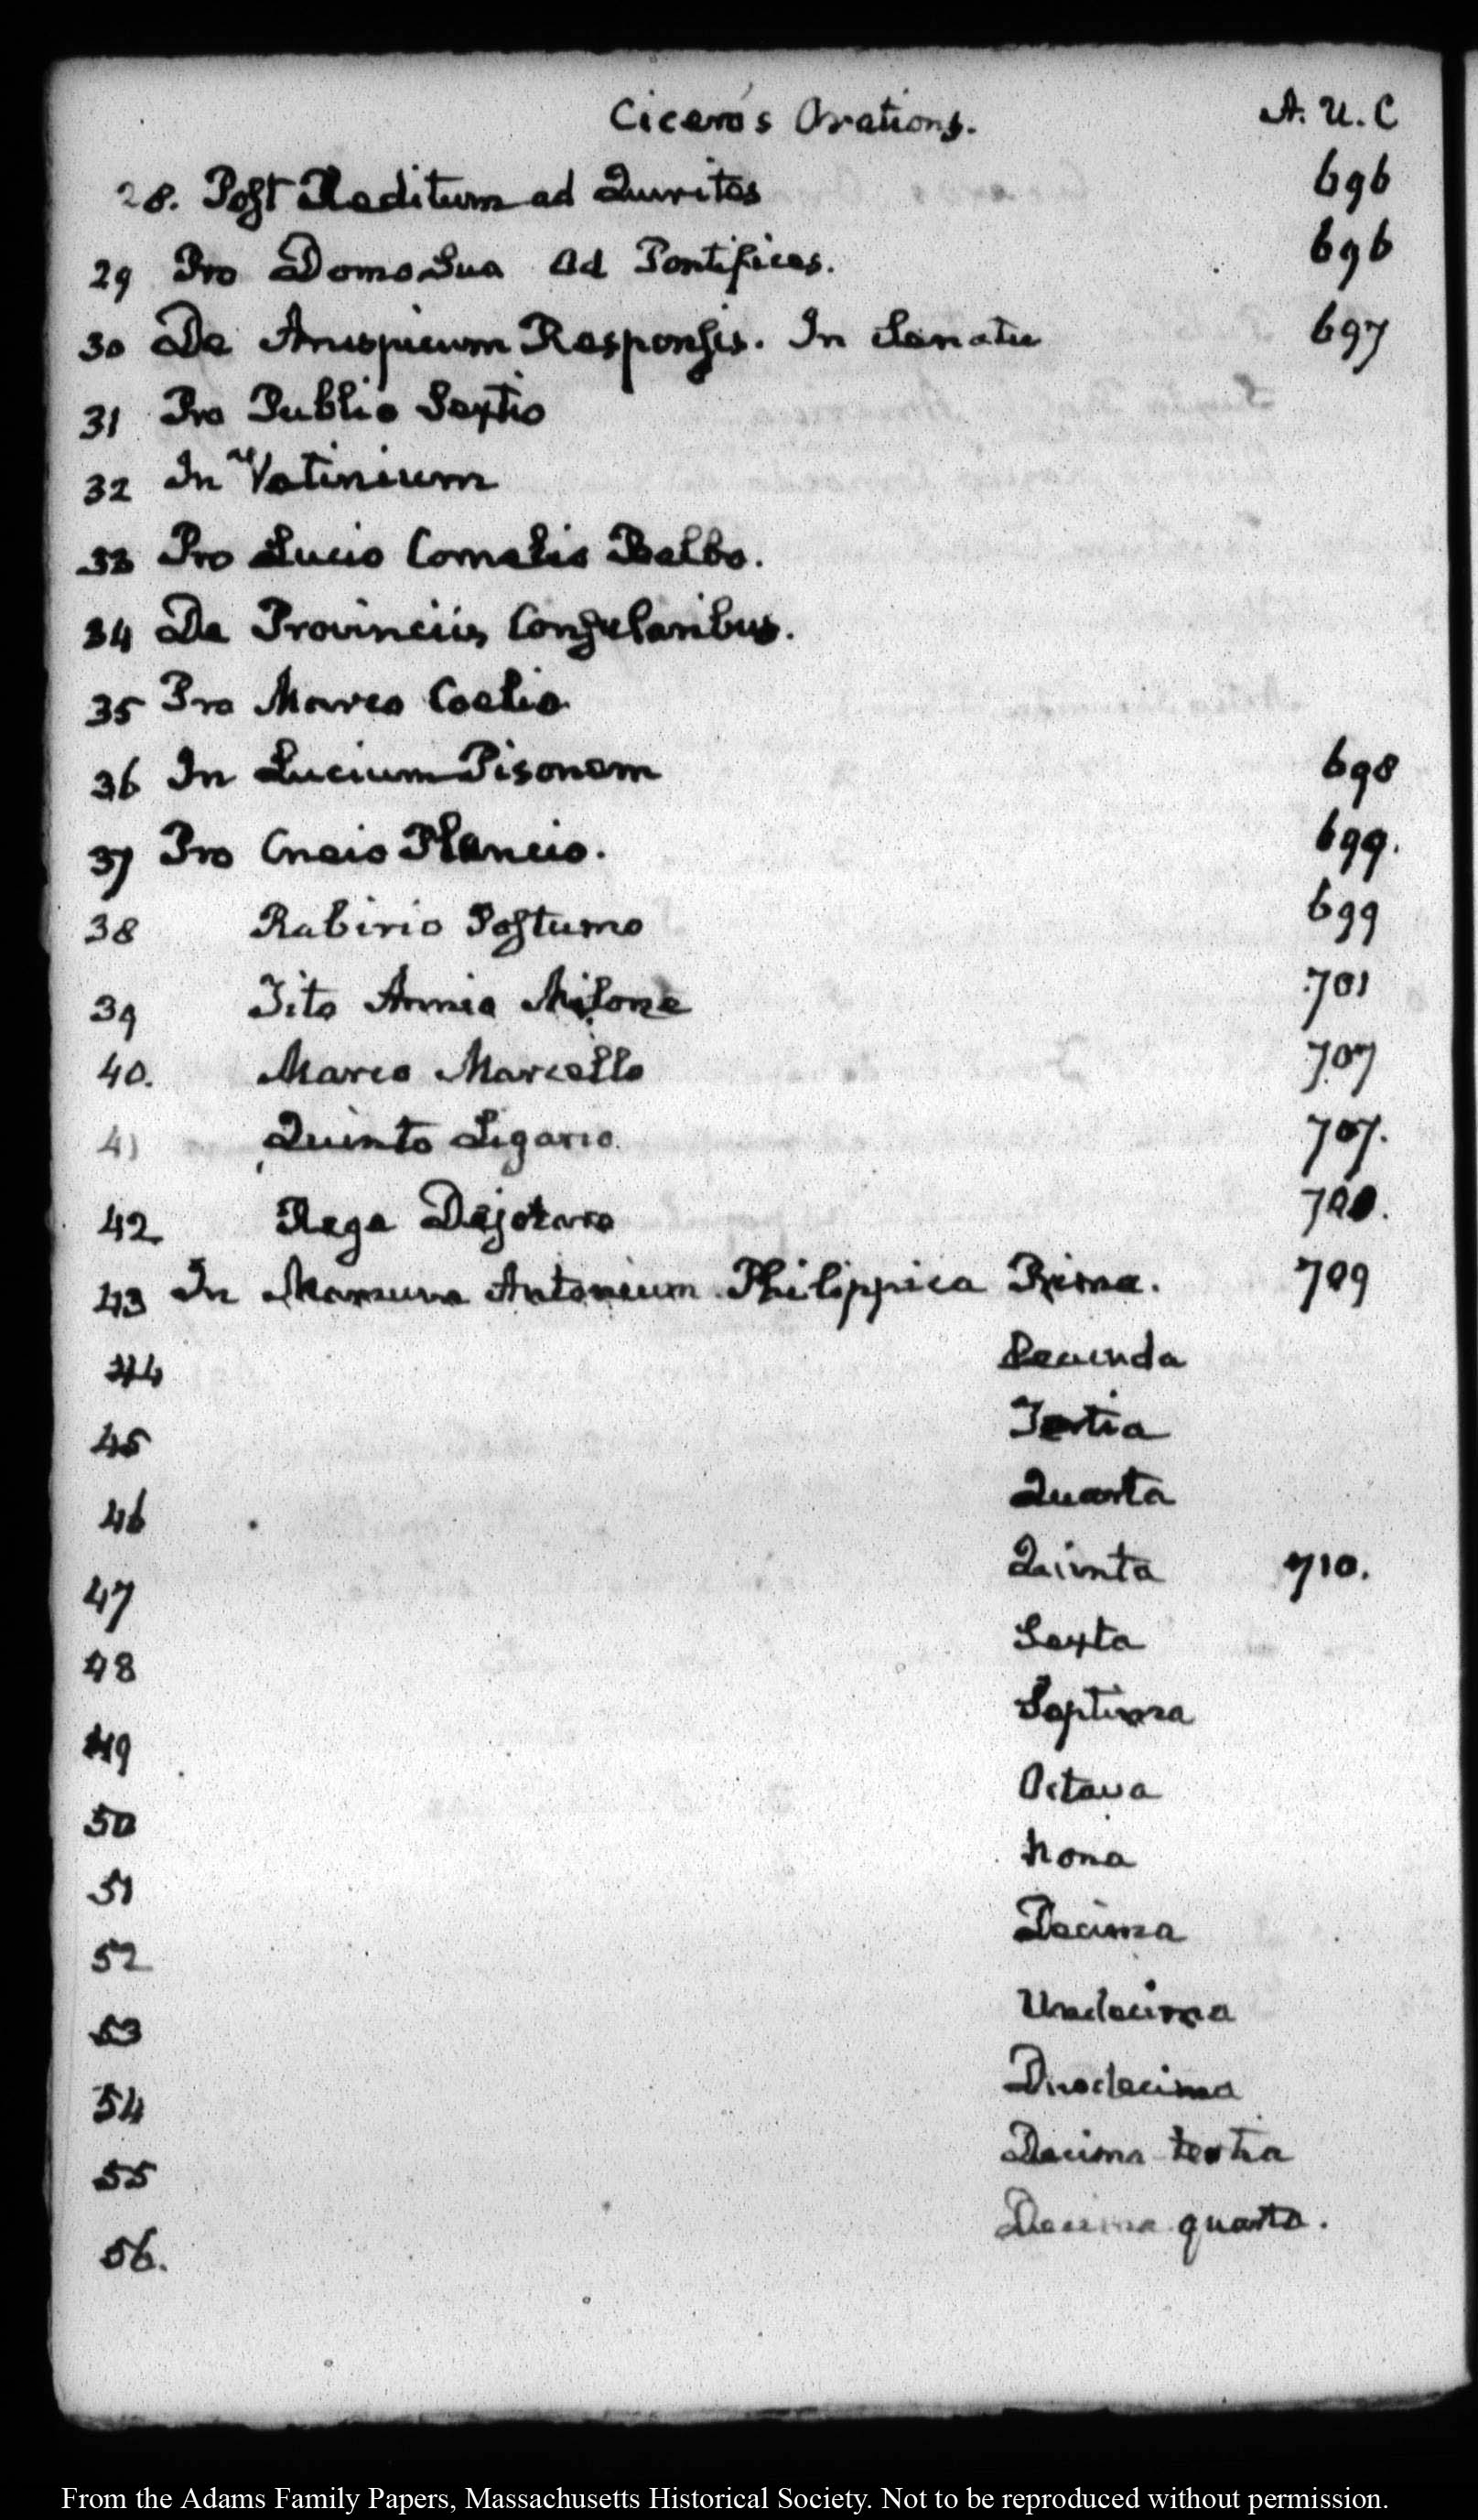 Cicero's Orations. A. U. C
28. Post Reditum ad Quirites 696
29 Pro Domo Sua ad Pontifices. 696
30 De Aruspicum Responsis. In Senatu 697
31 Pro Publio Sextio
32 In Vatinium
33 Pro Lucio Cornelio Balbo.
34 De Provinciis Consularibus.
35 Pro Marco Coelio
36 In Lucium Pisonem 698
37 Pro Cneio Plancio. 699.
38 Rabirio Postumo 699
39 Tito Annio Milone 701
40. Marco Marcello 707
41 Quinto Ligario. 707.
42 Rege Dejotaro
43 In Marcum Antonium Philippica Prima. 709
44 Secunda
45 Tertia
46 Quarta
47 Quinta 710.
48 Sexta
49 Septima
50 Octava
51 Nona
52 Decima
53 Undecima
54 Duodecima
55 Decima tertia
56. Decima quarta.
From the Adams Family Papers, Massachusetts Historical Society. Not to be reproduced without permission.